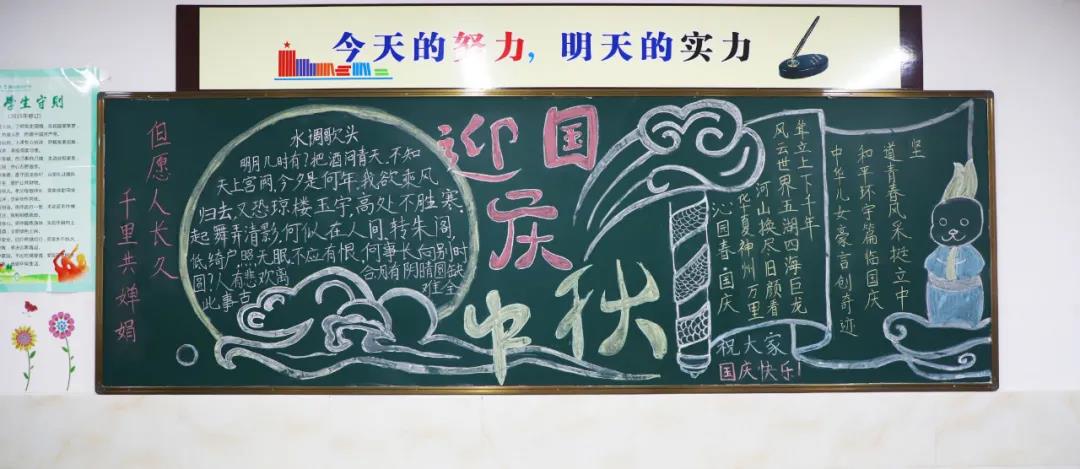 今天的努力，明天的实力
学生守则
但愿人长久
千里共婵娟
水调歌头
明月几时有?把酒问青天,不知
天上宫阙,今夕是何年,我欲乘风
归去,又恐琼楼玉宇,高处不胜寒
起舞弄清影,何似在人间,转朱阁
低绮户照无眠,不应有恨,何事长向别时
圆?人有悲欢离合,月有阴晴圆缺
此事古难全
迎国庆
中秋
沁园春·国庆
华夏神州万里
河山换尽旧颜看
风云世界五湖四海巨龙
耸立上下千年
中华儿女豪言创奇迹
和平环宇篇临国庆
道青春风采挺立中
坚
祝大家
国庆快乐!